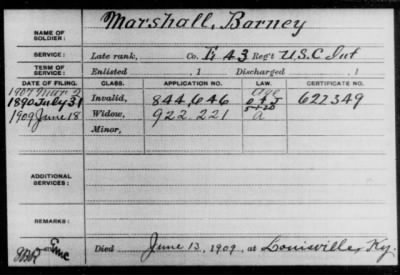 NAME OF SOLDIER: Marshall, Barney
SERVICE: Late rank, Co. E 43 Reg't U.S.C Inf
TERM OF SERVICE: Enlisted , 1 Discharged , 1
DATE OF FILING. CLASS. APPLICATION NO. LAW. CERTIFICATE NO.
1907 Mar 2 Age
1890 July 31 Invalid, 844,646 622349
1909 June 18 Widow, 922.221 a
Minor,
ADDITIONAL SERVICES:
REMARKS:
Died June 13, 1909, at Louisville, Ky.